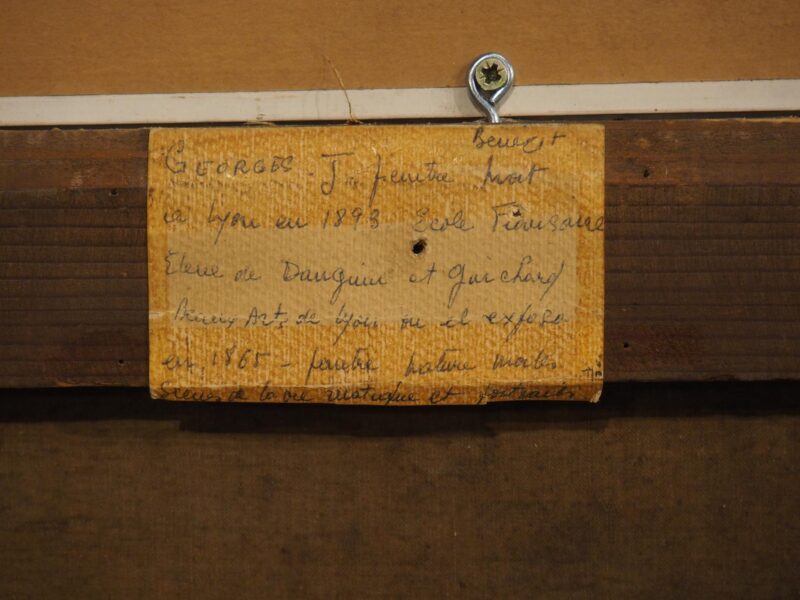 Benezit
GEORGES. J. peintre mort
a Lyon en 1893 Ecole
Eleve de Danguin et Guichard
Beaux Arts de Lyon ou il exposa
en 1865 - peintre nature mortes
Scenes de la vie rustique et portraits